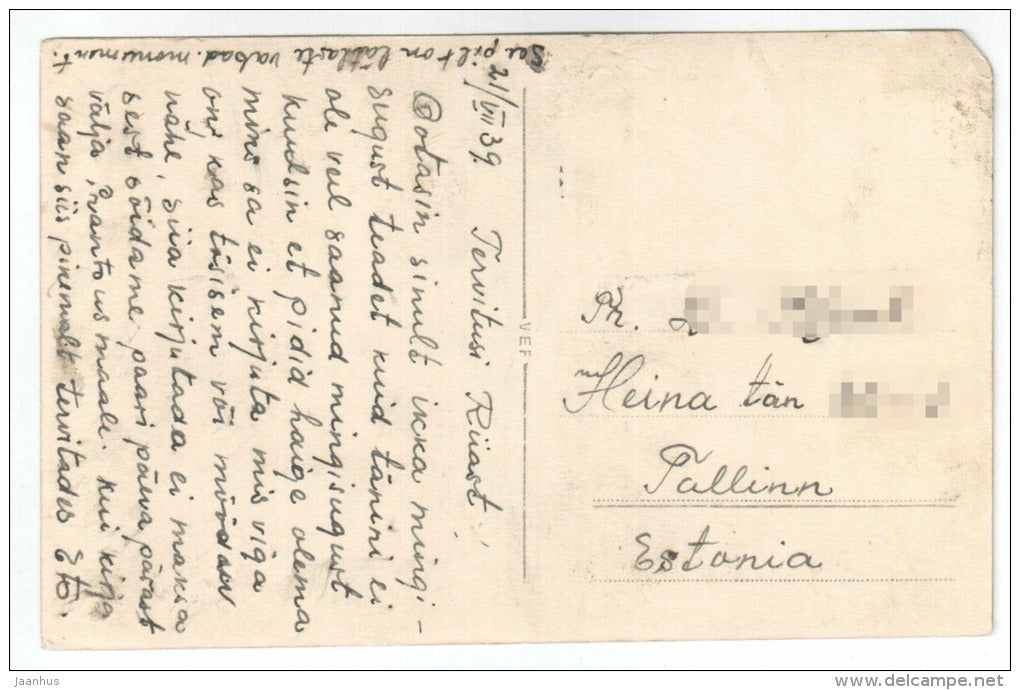 See pilt on lätlaste vabad. monument.
21/VII 39. Tervitusi Riiast!
Ootasin sinult ikka mingi-
sugust teadet kuid tänini ei
ole veil saanud mingisugust
kuulsin et pidid haige olema
mins sa ei kirjuta mis viga
on, kas tõsisem või möödan
nähe, siia kirjutada ei maksa
sest sõidame paari päeva pärast
välja, Prantsusmaale. kui kirja
saan siis pikemalt tervitades
VEF
Ph.
Heina tän
Tallinn
Estonia
Jaanhus
www.delcampe.net